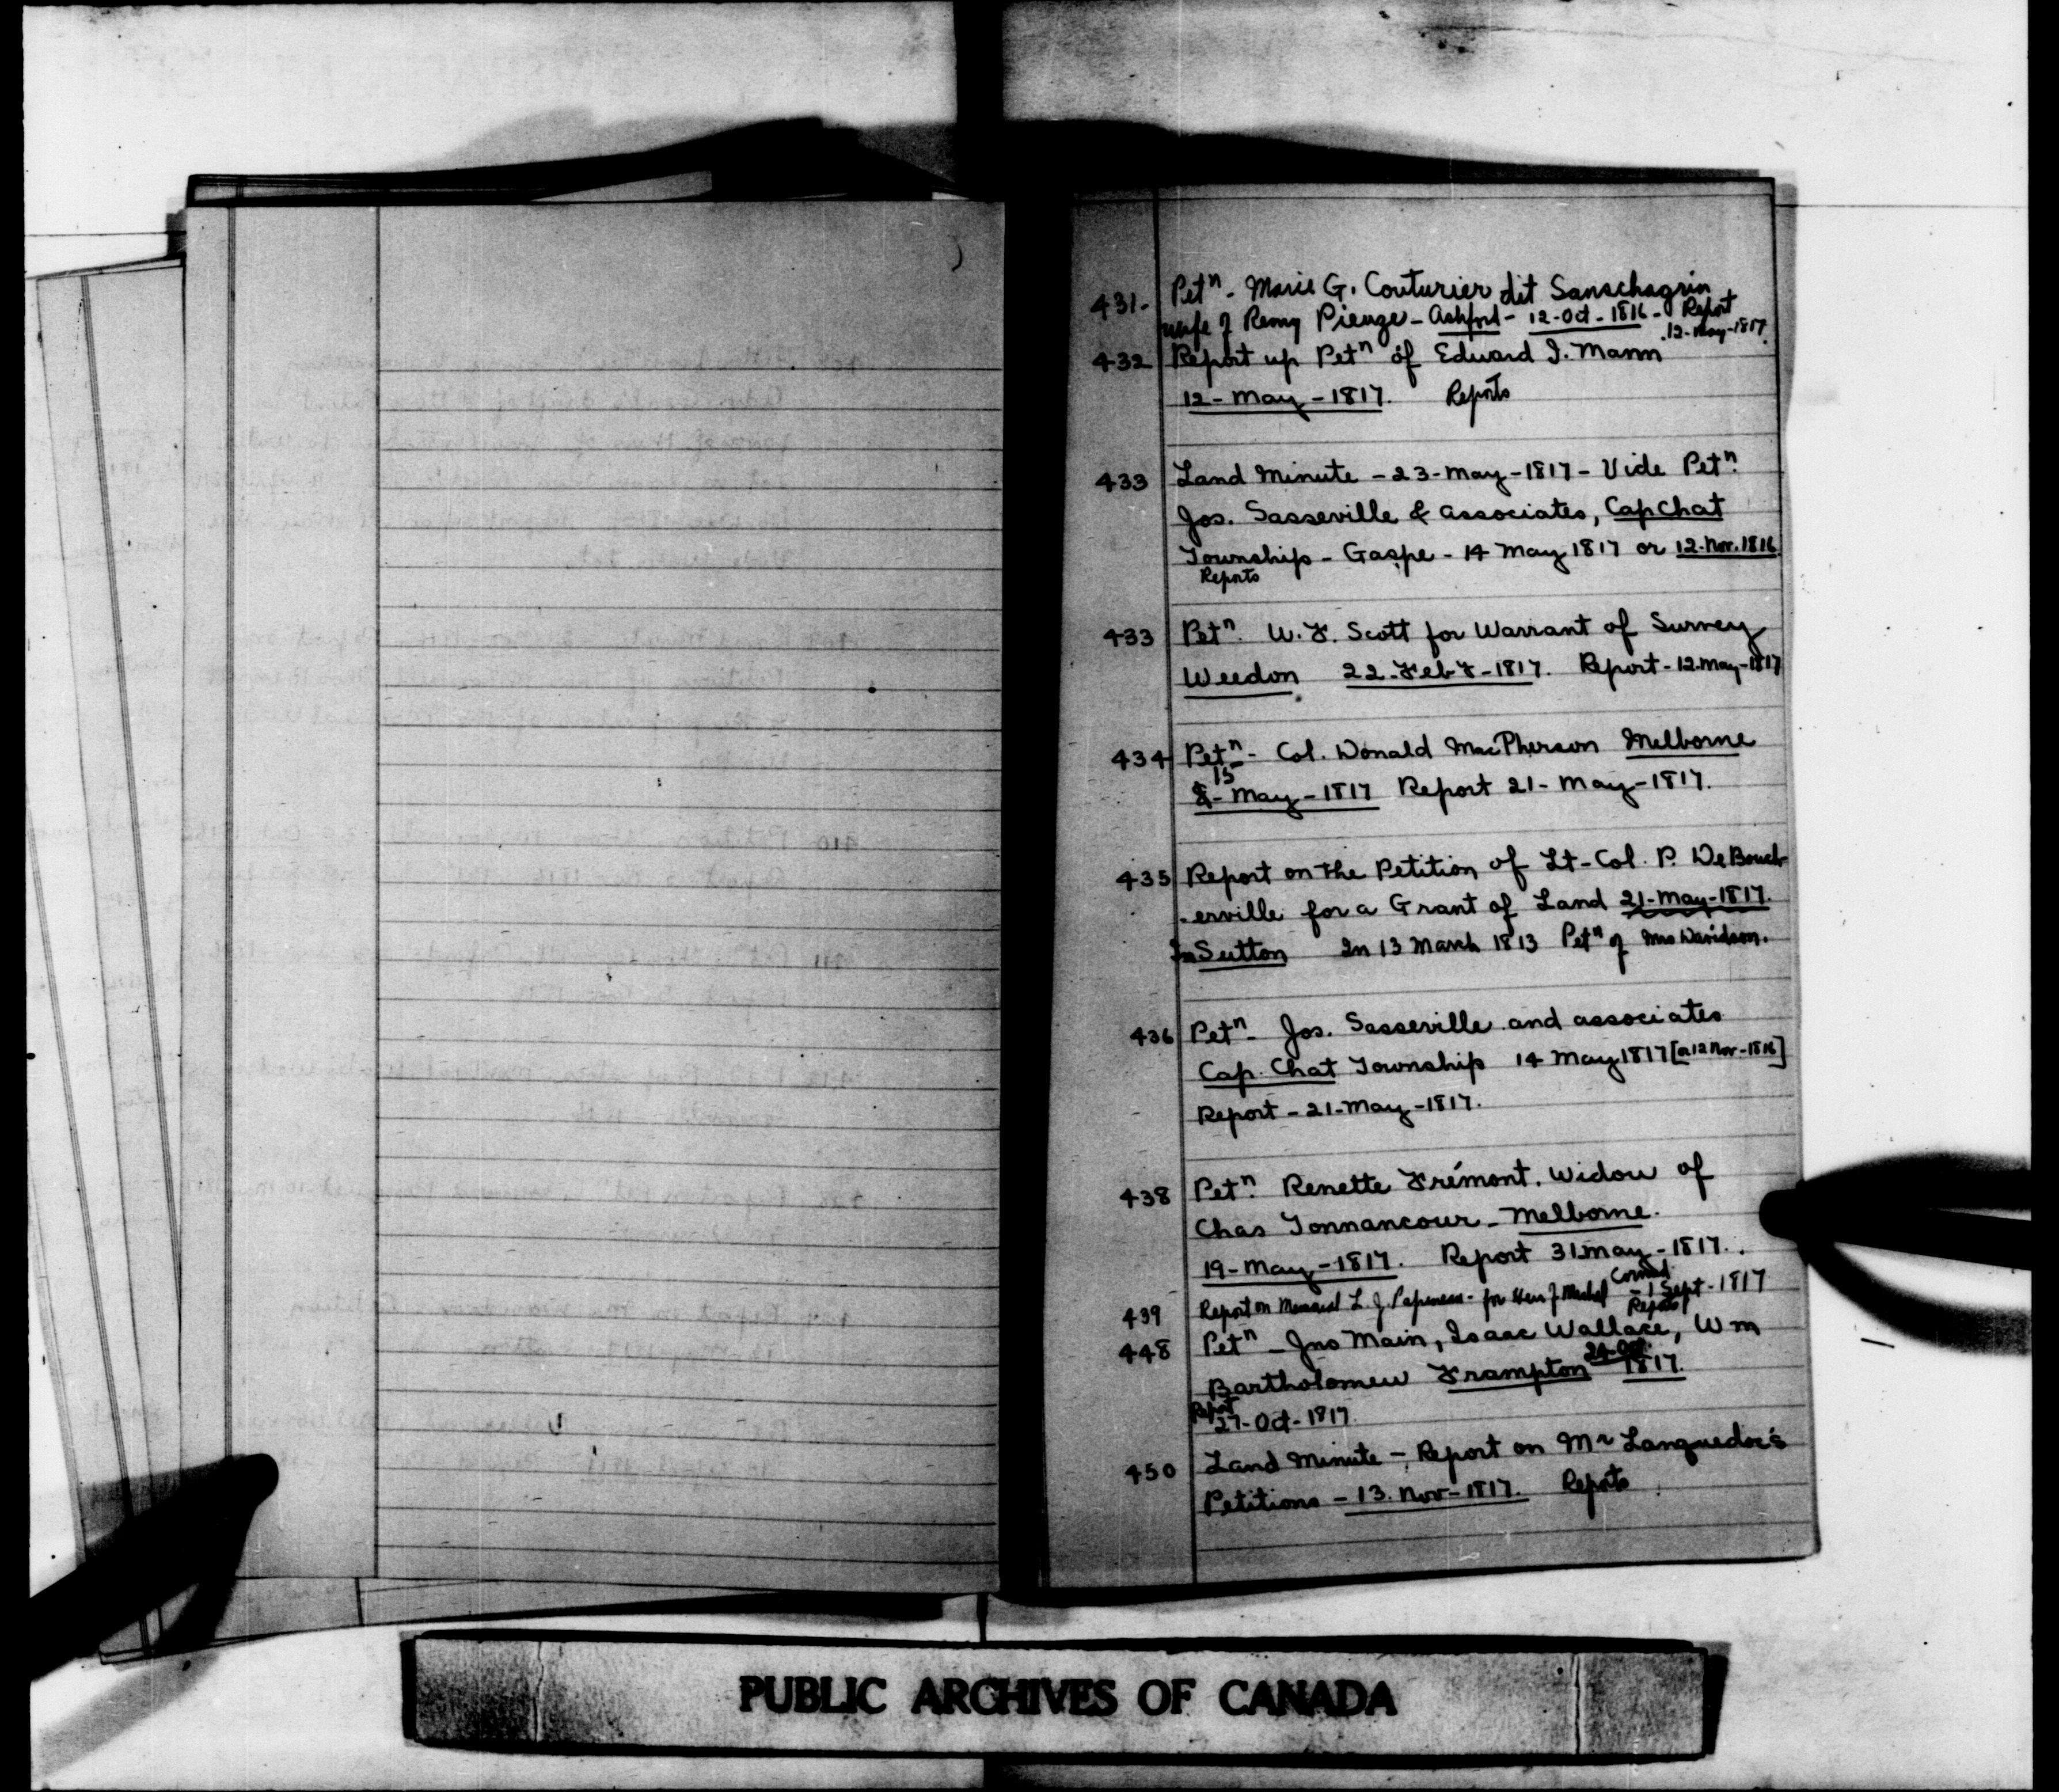 431- Petⁿ - Marie G. Couturier dit Sanschagrin
wife of Remy Pieuze - Ashford - 12-Oct-1816 - Report
12-May-1817.
432 Report up Petⁿ of Edward I. Mann
12-May-1817. Reports
433 Land Minute - 23-May-1817 - Vide Petⁿ.
Jos. Sasseville & associates, Cap Chat
Township - Gaspe - 14 May 1817 or 12.Nov.1816
Reports
433 Petⁿ. W.F. Scott for Warrant of Survey
Weedon 22-Feby-1817. Report-12.May-1817
434 Petⁿ - Col. Donald MacPherson Melborne
15
May-1817 Report 21-May-1817.
435 Report on the Petition of Lt-Col. P. DeBouch-
-erville for a Grant of Land 21-May-1817.
In Sutton In 13 March 1813 Petⁿ of Mrs Davidson.
436 Petⁿ - Jos. Sasseville and associates
Cap. Chat Township 14 May 1817 [or 12 Nov-1816]
Report - 21-May-1817.
438 Petⁿ. Renette Frémont. Widow of
Chas Tonnancour - Melborne.
19-May-1817. Report 31 May-1817.
439 Report on Memorial L. J. Papineau - for Heirs J. - 1 Sept-1817
Reports
448 Petⁿ - Jno Main, Isaac Wallace, Wm
Bartholomew Frampton 24-Oct. 1817.
Report
27-Oct-1817.
450 Land Minute - Report on Mr Languedoc's
Petitions - 13.Nov-1817. Reports
PUBLIC ARCHIVES OF CANADA